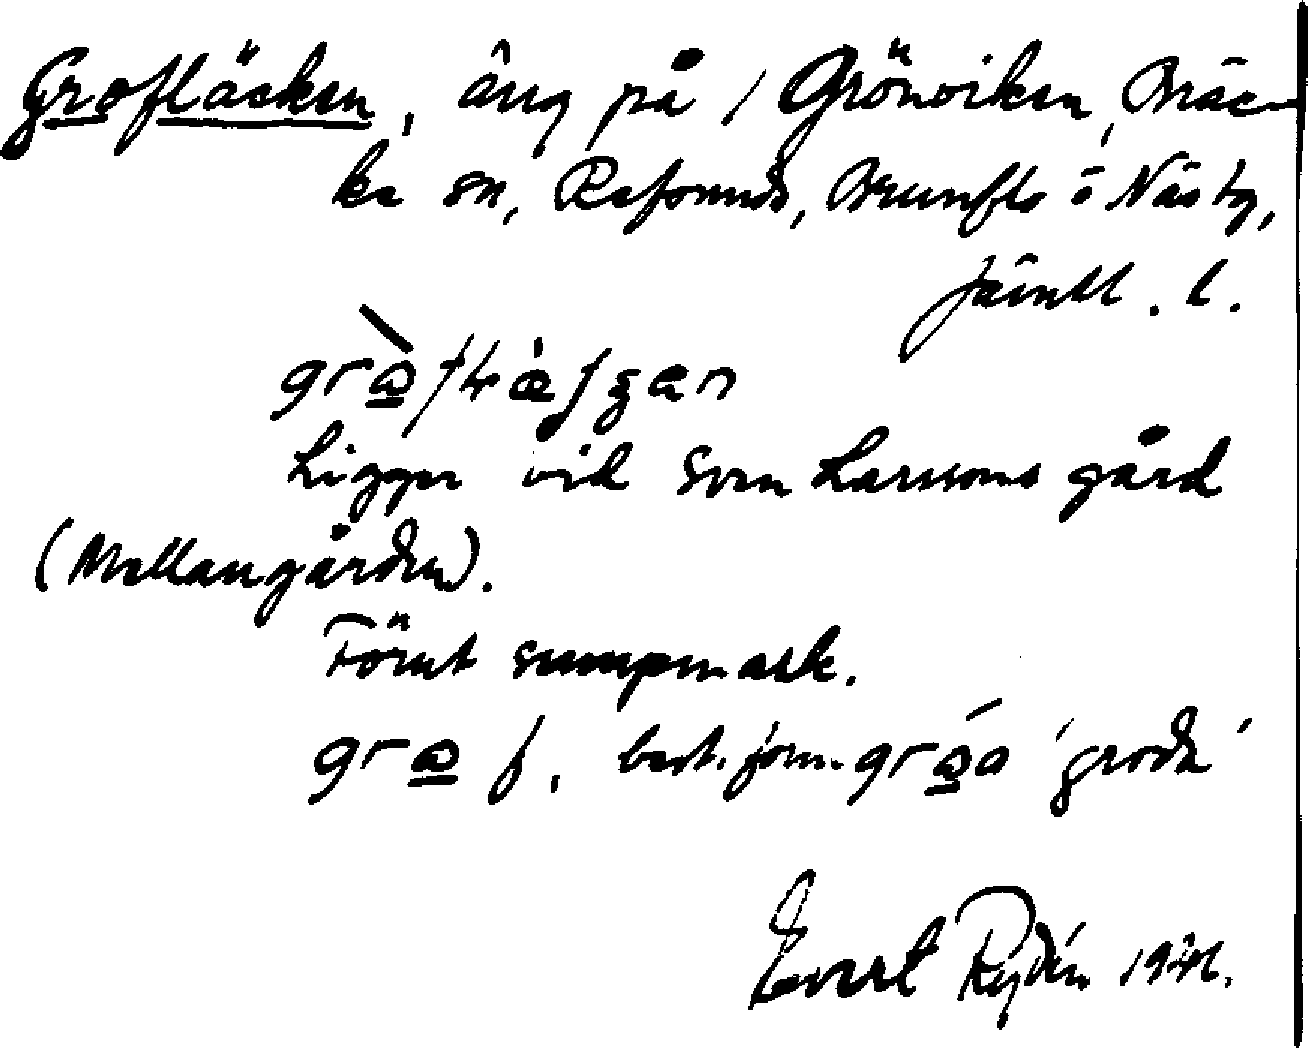 Grofläsken, äng på 1 Grönviken, Bräc-
ke sn, Refsunds, Brunflo o Näs tg,
Jämtl. l.
Ligger vid Sven Larssons gård
(Mellangården).
Förut sumpmark.
gra̲ f, best. form. 'groda'
Evert Rydén 1941.